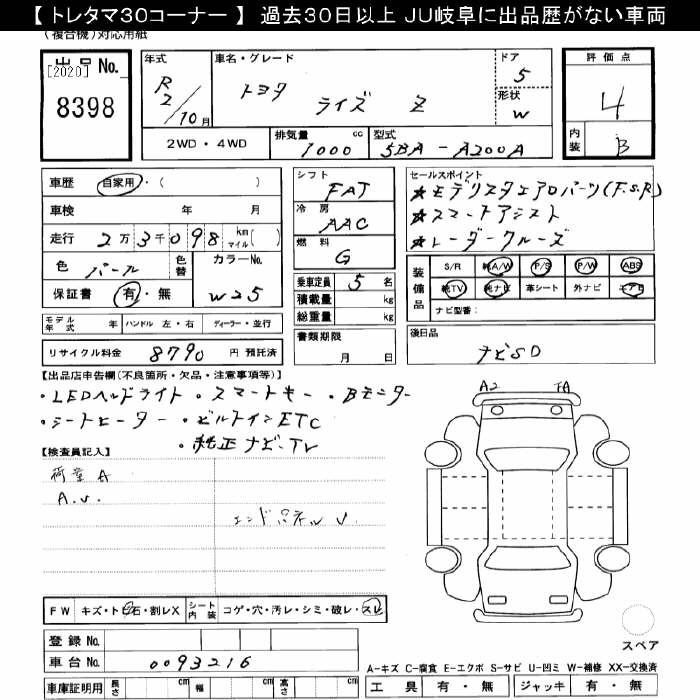 【 トレタマ30コーナー 】 過去30日以上 JU岐阜に出品歴がない車両
(複合機)対応用紙
出品No.
[2020]
8398
年式
R2/10月
車名・グレード
トヨタ ライズ Z
ドア
5
形状
W
評価点
4
内装
B
2WD・4WD
排気量 1000 cc
型式 5BA-A200A
車歴 自家用・( )
車検 年 月
走行 2万3千098 km マイル( )
色 パール
色替
カラーNo. W25
保証書 有・無
モデル年式 年
ハンドル 左・右
ディーラー・並行
リサイクル料金 8790 円 預託済
シフト
FAT
冷房
AAC
燃料
G
乗車定員 5 名
積載量 kg
総重量 kg
書類期限
月 日
セールスポイント
★モデリスタエアロパーツ(F.S.R)
★スマートアシスト
★レーダークルーズ
装備品
S/R 純A/W P/S P/W ABS
純TV 純ナビ 革シート 外ナビ エアB
ナビ型番:
後日品
ナビSD
【出品店申告欄(不良箇所・欠品・注意事項等)】
・LEDヘッドライト ・スマートキー ・Bモニター
・シートヒーター ・ビルトインETC
・純正ナビ-TV
【検査員記入】
荷室 A
A.U.
エンドパネル U
A2 FA
FW キズ・トビ石・割レX
シート内装 コゲ・穴・汚レ・シミ・破レ・スレ
登録No.
車台No. 0093216
車庫証明用 長さ cm 幅 cm 高さ cm
スペア
A-キズ C-腐食 E-エクボ S-サビ U-凹ミ W-補修 XX-交換済
工具 有・無 ジャッキ 有・無